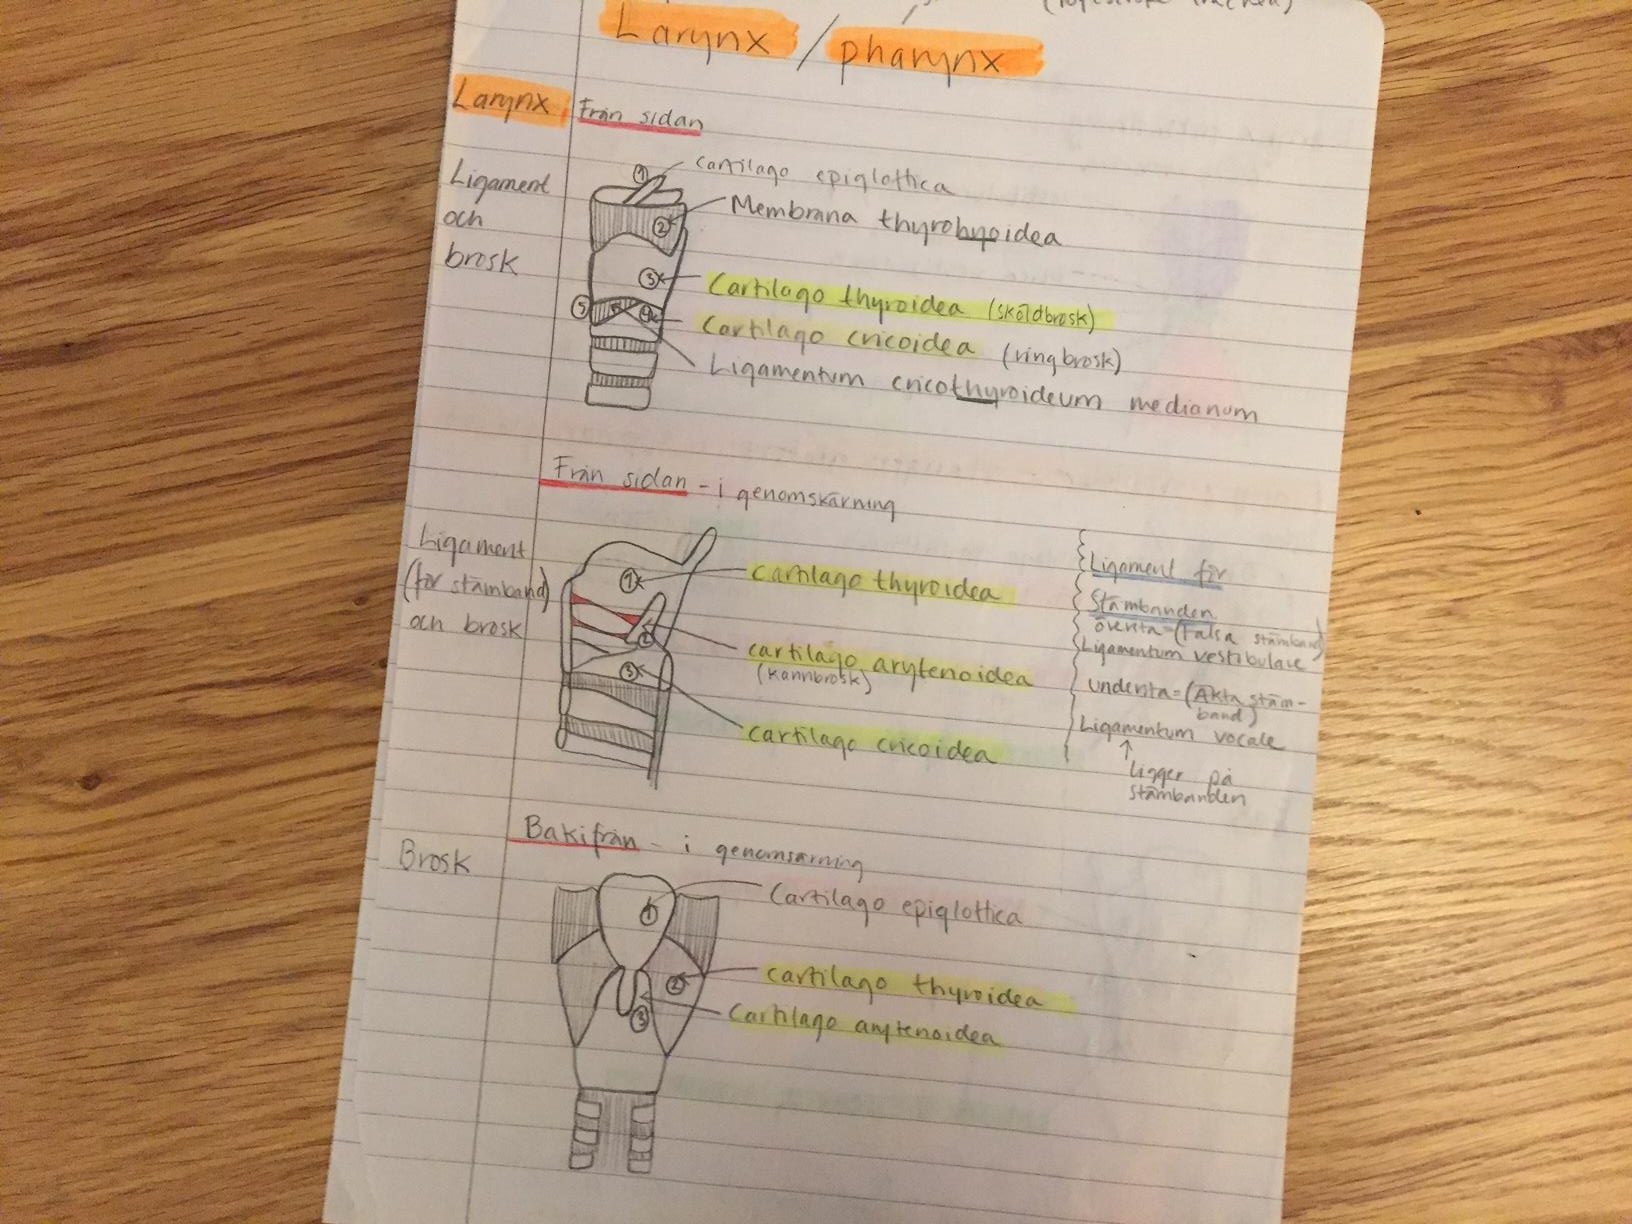 Larynx / pharynx
Larynx
Från sidan
Ligament
och
brosk
1
cartilago epiglottica
2
Membrana thyrohyoidea
3
Cartilago thyroidea (sköldbrosk)
5
4
Cartilago cricoidea (ringbrosk)
Ligamentum cricothyroideum medianum
Från sidan - i genomskärning
Ligament
(för stämband)
och brosk
1
cartilago thyroidea
2
cartilago arytenoidea
(kannbrosk)
3
cartilago cricoidea
Ligament för
Stämbanden
översta = (Falsa stämband)
Ligamentum vestibulare
understa = (Äkta stäm-
band)
Ligamentum vocale
↑
ligger på
stämbanden
Bakifrån - i genomsärning
Brosk
1
Cartilago epiglottica
2
cartilago thyroidea
3
Cartilago arytenoidea